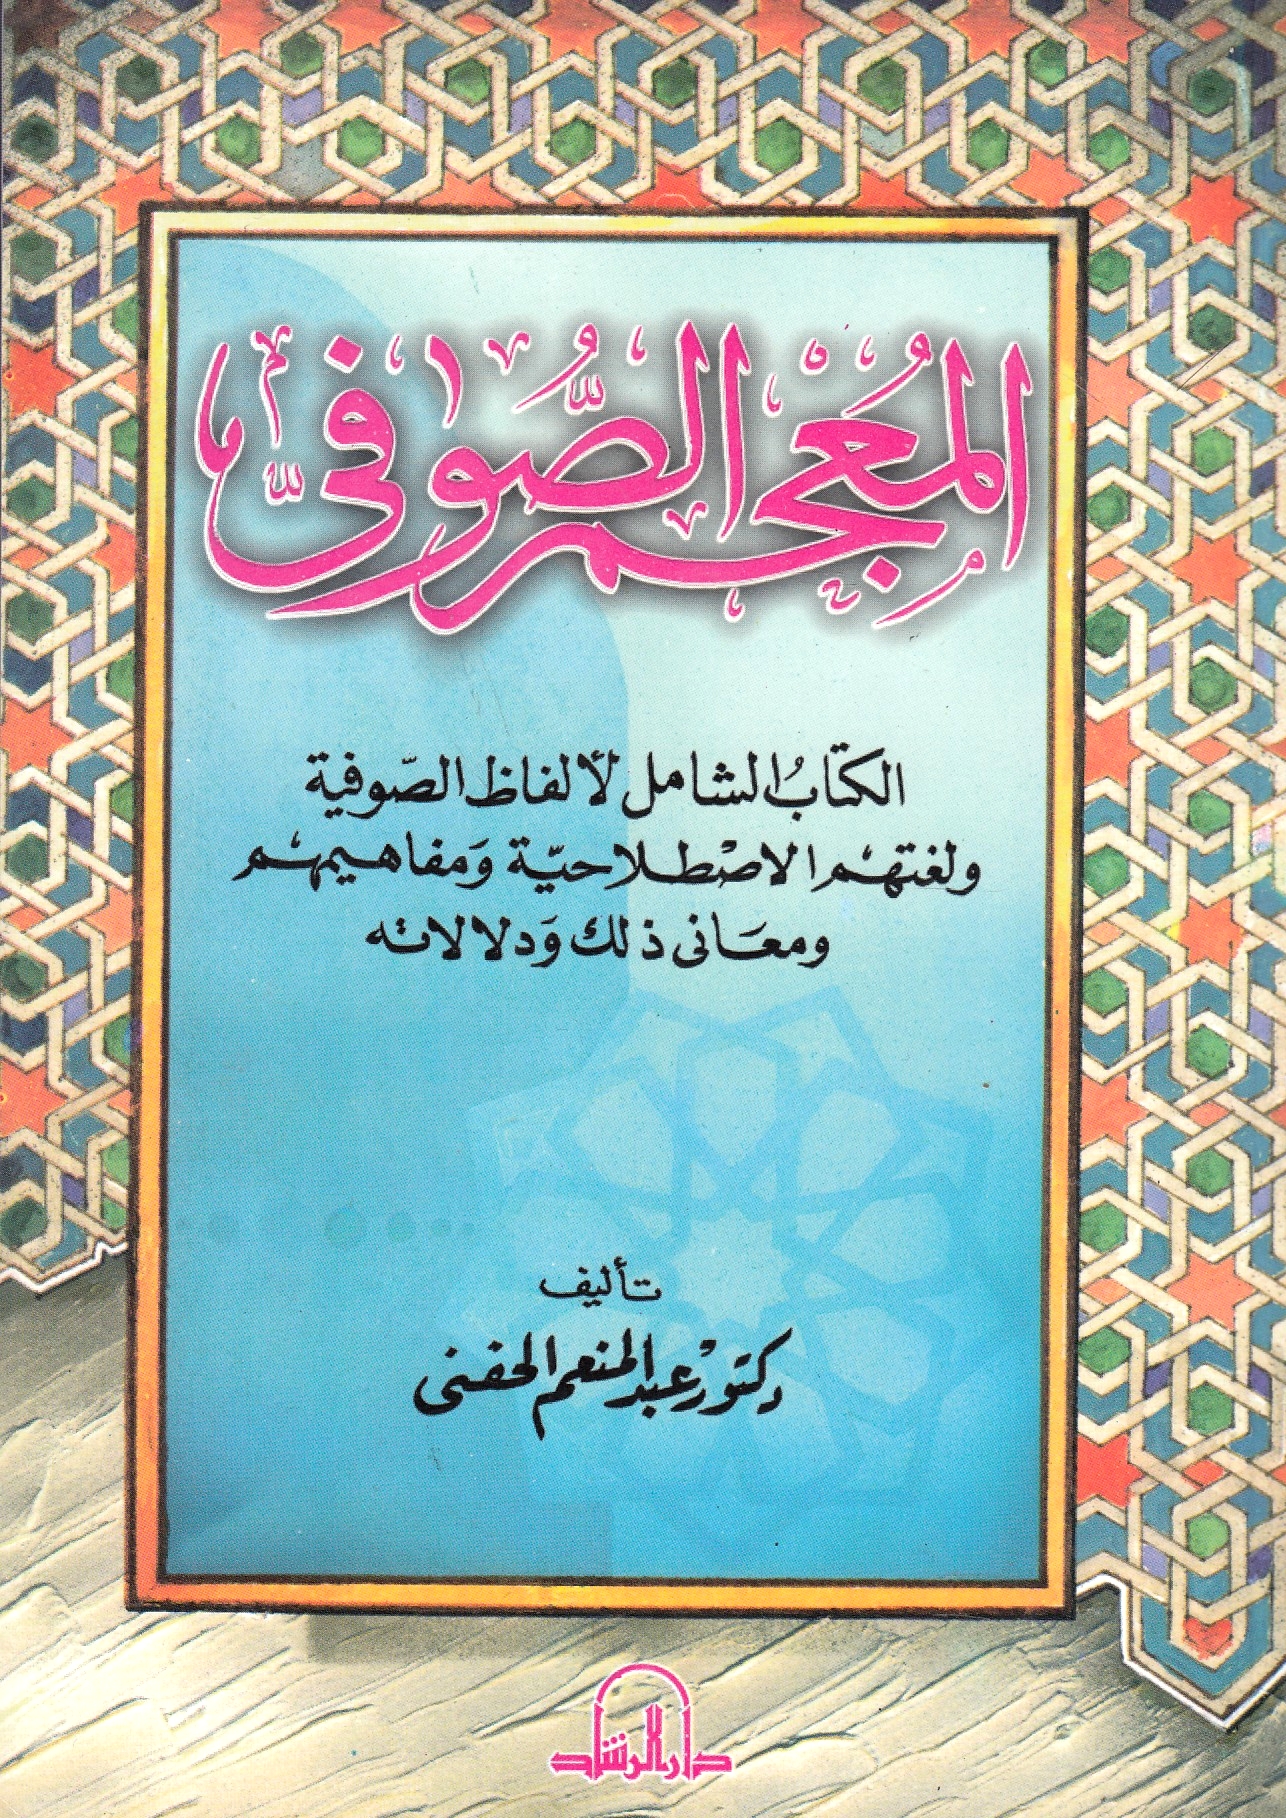 المُعْجَم الصُّوفِيّ
الكتابُ الشامل لألفاظ الصّوفية
ولغتهم الاصْطلاحيّة وَمفاهيمهم
ومعَانى ذلك وَدلالاته
تأليف
دكتورْ عبد المنعم الحفنى
دار الرشاد